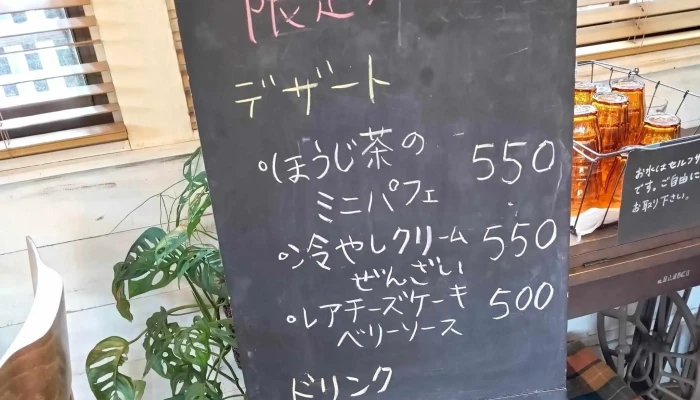 限定
デザート
ほうじ茶の 550
ミニパフェ
冷やしクリーム 550
ぜんざい
レアチーズケーキ 500
ベリーソース
ドリンク
お水はセルフサ
です。ご自由に
お取り下さい。